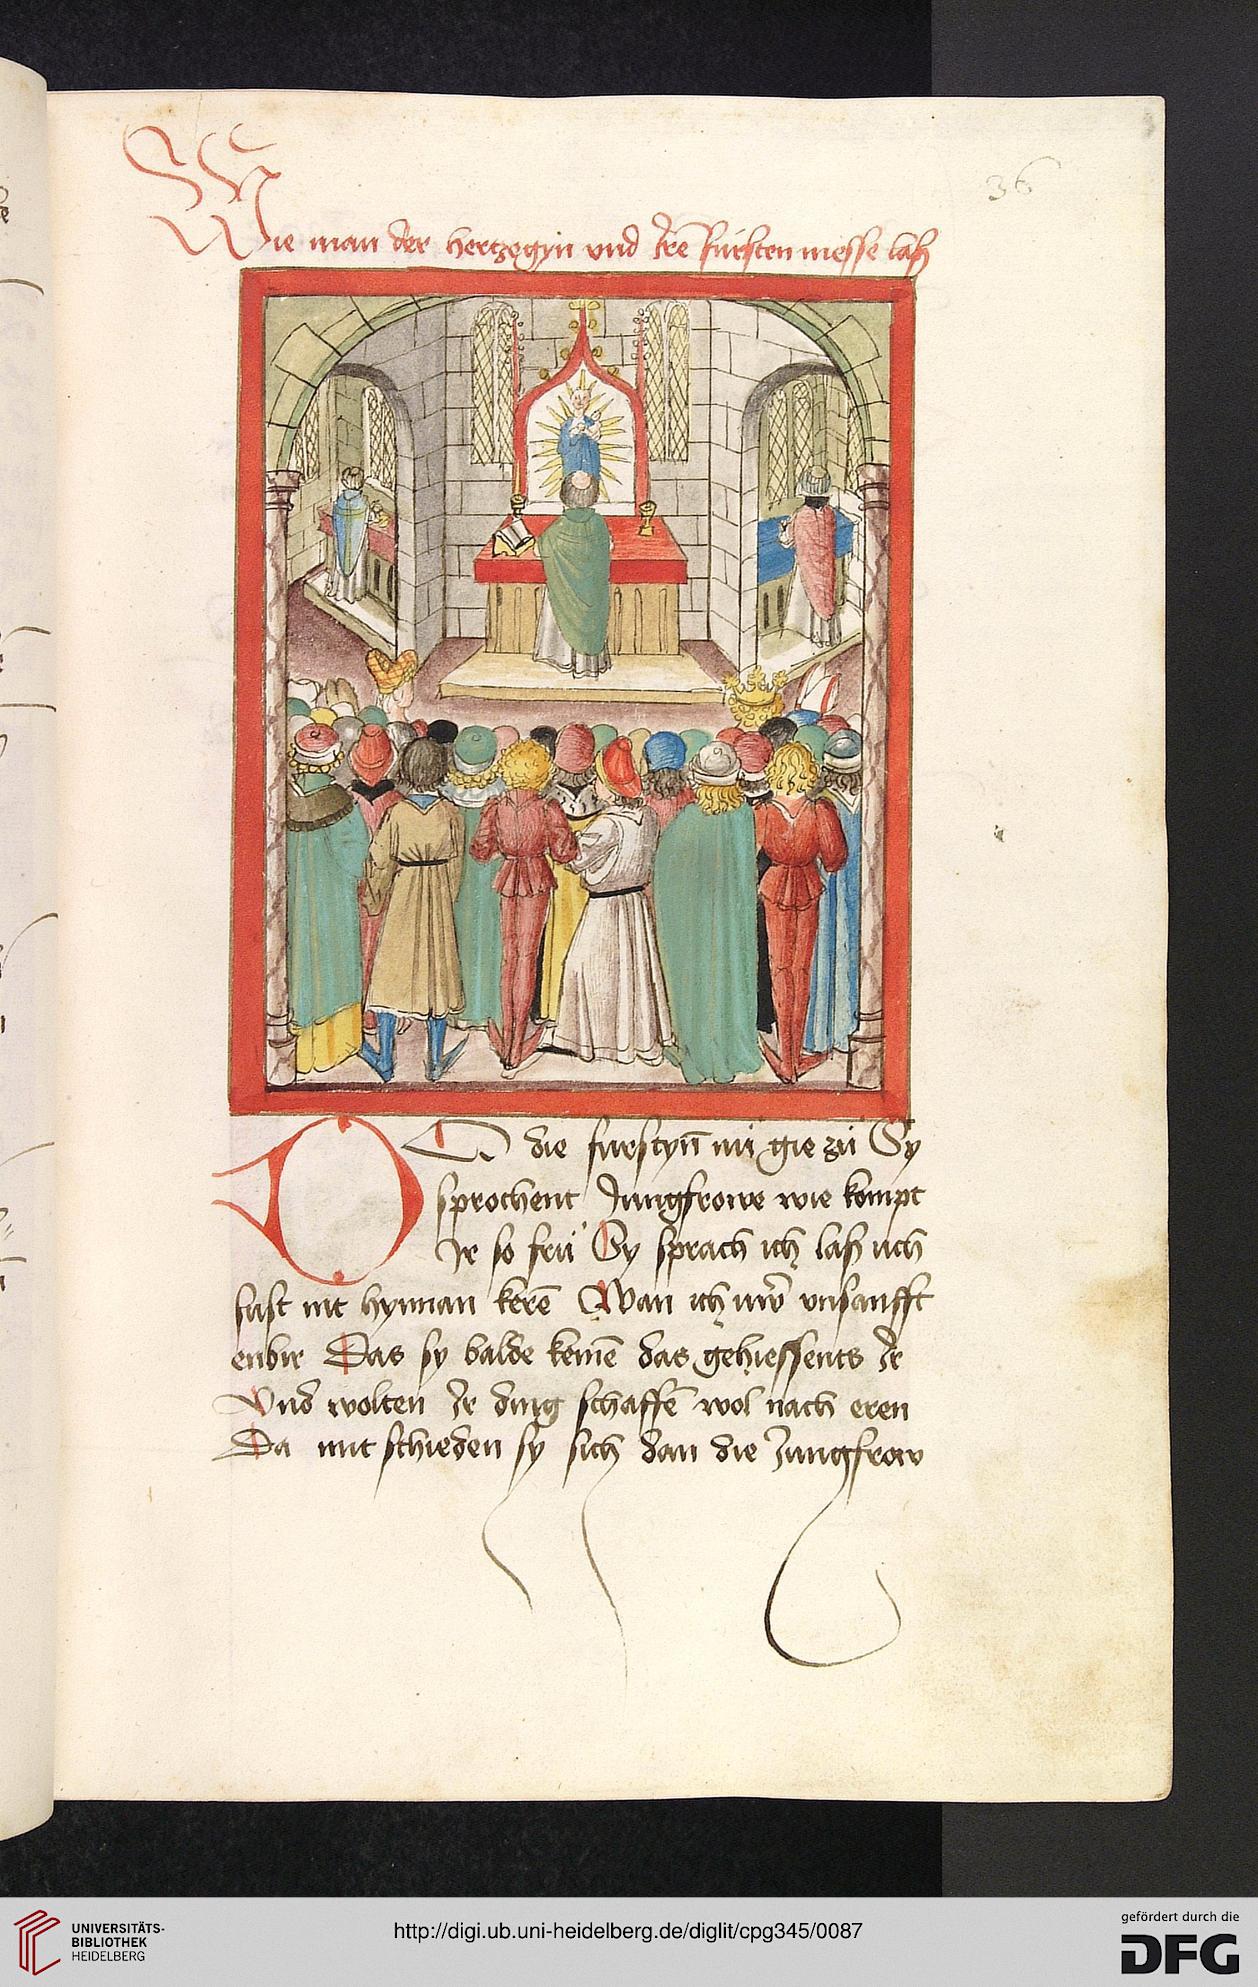 36
Wie man der hertzogyn und Jre fürsten messe laß
DO die furstyn̄ nü gie zü Sy
sprochent Jungfrowe wie kompt
Jr so frü Sy sprach ich laß uch
sust nit hynnan kerē Wan ich uwer unsanfft
enbir Das sy balde kemē das gehiessents Jr
Und wolten Jr ding schaffē wol nach eren
Da mit schieden sy sich dan die Jungfrow
UNIVERSITÄTS-
BIBLIOTHEK
HEIDELBERG
http://digi.ub.uni-heidelberg.de/diglit/cpg345/0087
gefördert durch die
DFG